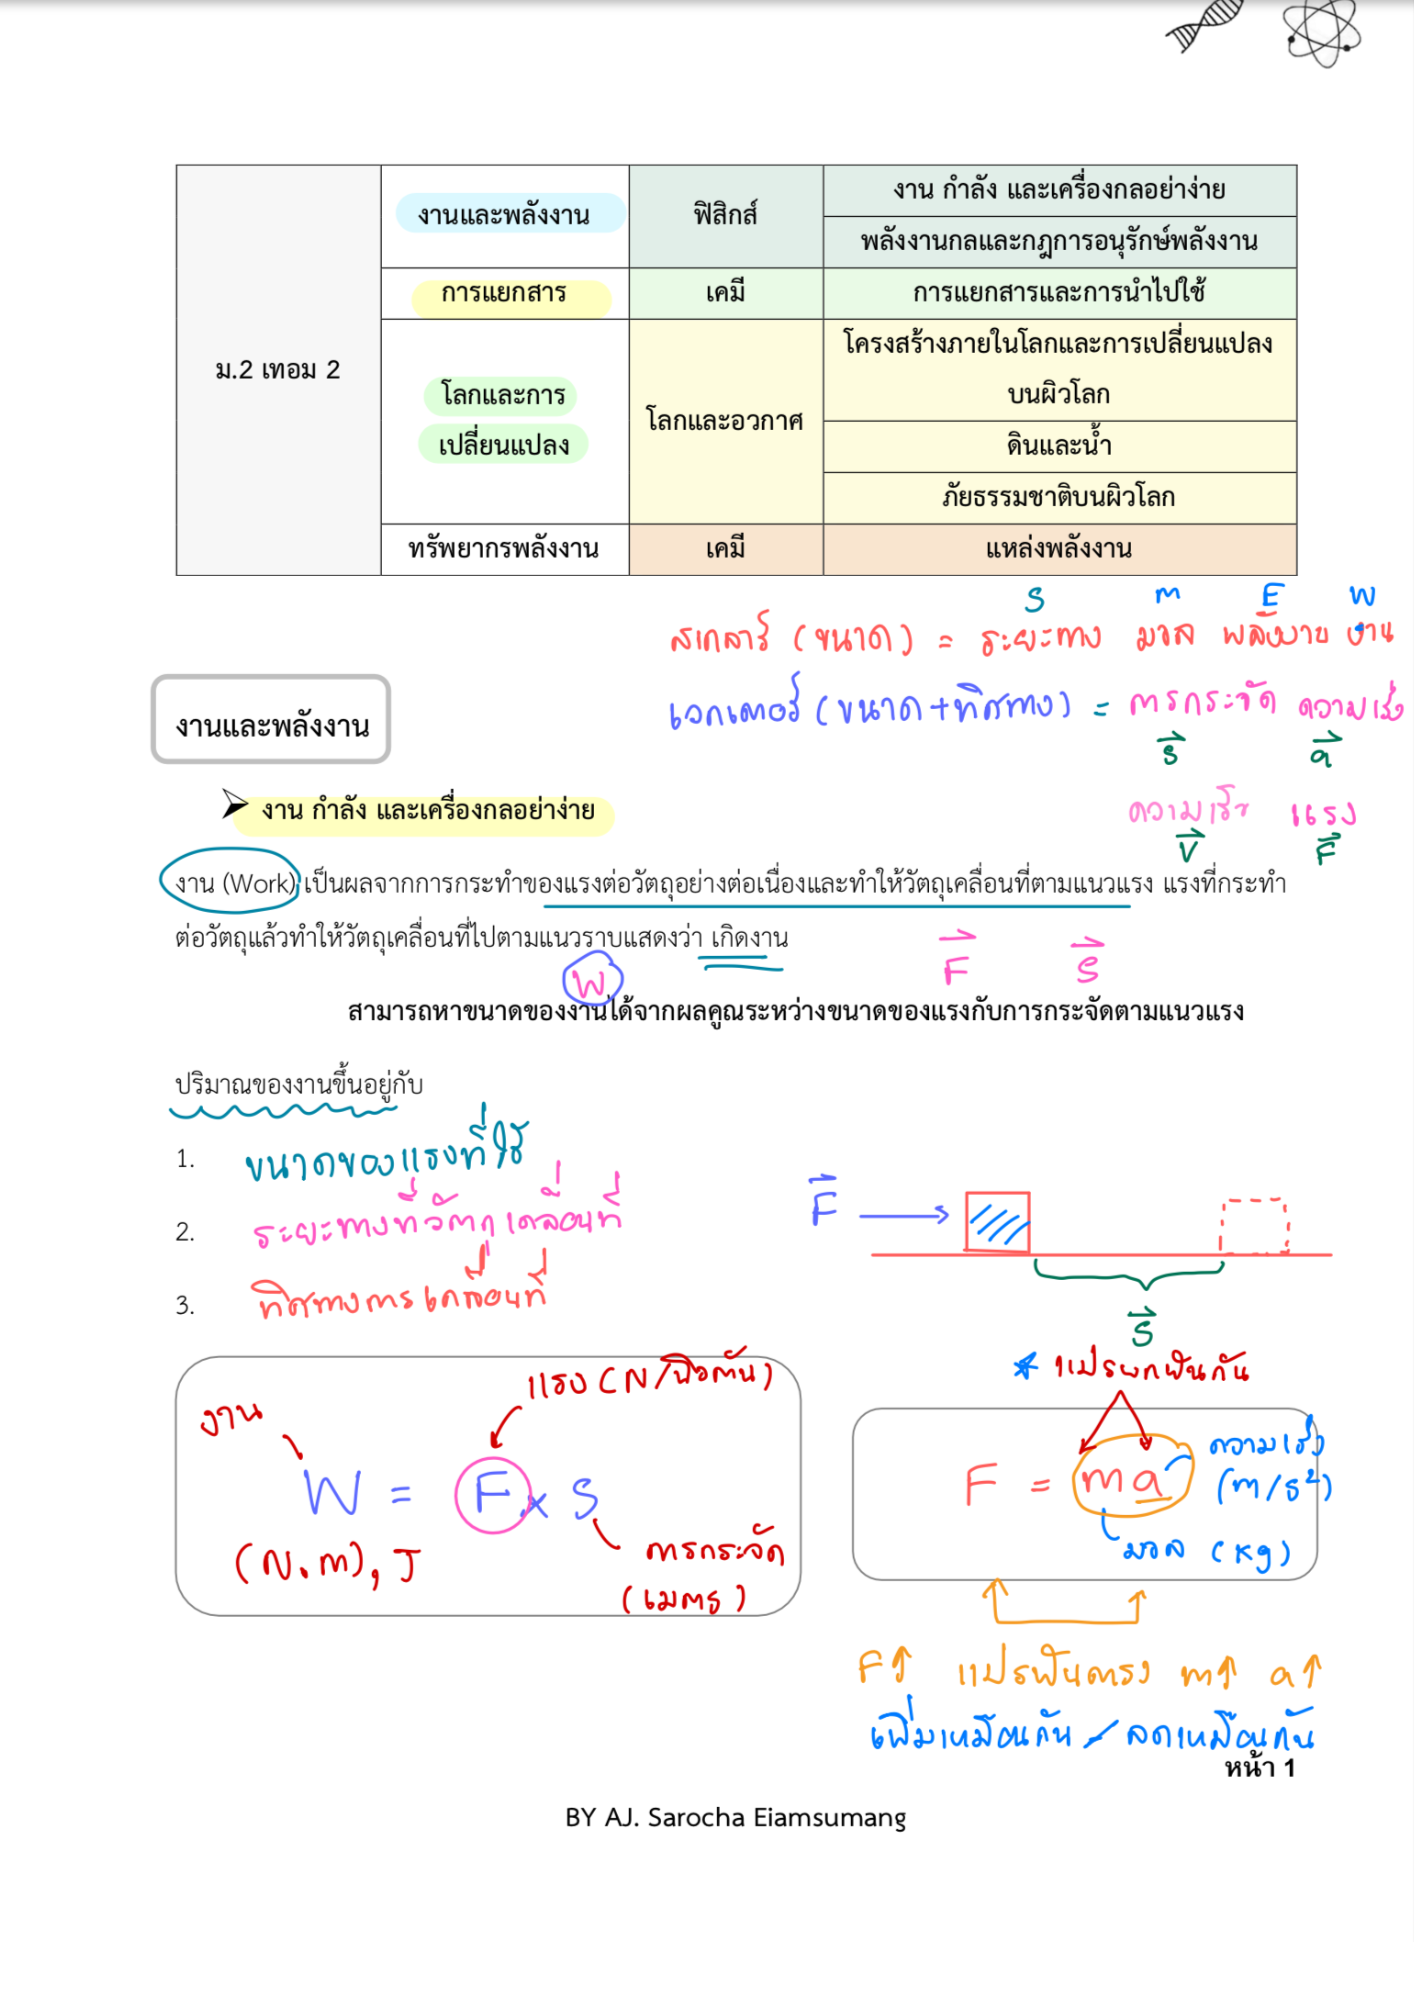 ม.2 เทอม 2
งานและพลังงาน
ฟิสิกส์
งาน กำลัง และเครื่องกลอย่าง่าย
พลังงานกลและกฎการอนุรักษ์พลังงาน
การแยกสาร
เคมี
การแยกสารและการนำไปใช้
โลกและการ
เปลี่ยนแปลง
โลกและอวกาศ
โครงสร้างภายในโลกและการเปลี่ยนแปลง
บนผิวโลก
ดินและน้ำ
ภัยธรรมชาติบนผิวโลก
ทรัพยากรพลังงาน
เคมี
แหล่งพลังงาน
S m E W
สเกลาร์ (ขนาด) = ระยะทาง มวล พลังงาน งาน
เวกเตอร์ (ขนาด+ทิศทาง) = การกระจัด ความเร่ง
S a
ความเร็ว แรง
V F
งานและพลังงาน
งาน กำลัง และเครื่องกลอย่าง่าย
งาน (Work) เป็นผลจากการกระทำของแรงต่อวัตถุอย่างต่อเนื่องและทำให้วัตถุเคลื่อนที่ตามแนวแรง แรงที่กระทำ
ต่อวัตถุแล้วทำให้วัตถุเคลื่อนที่ไปตามแนวราบแสดงว่า เกิดงาน
W F S
สามารถหาขนาดของงานได้จากผลคูณระหว่างขนาดของแรงกับการกระจัดตามแนวแรง
ปริมาณของงานขึ้นอยู่กับ
1. ขนาดของแรงที่ใช้
2. ระยะทางที่วัตถุเคลื่อนที่
3. ทิศทางการเคลื่อนที่
F
S
งาน
แรง (N/นิวตัน)
W = F x S
(N.m), J
การกระจัด
(เมตร)
แปรผกผันกัน
F = ma
ความเร่ง
(m/s²)
มวล (kg)
F↑ แปรผันตรง m↑ a↑
เพิ่มเหมือนกัน / ลดเหมือนกัน
หน้า 1
BY AJ. Sarocha Eiamsumang